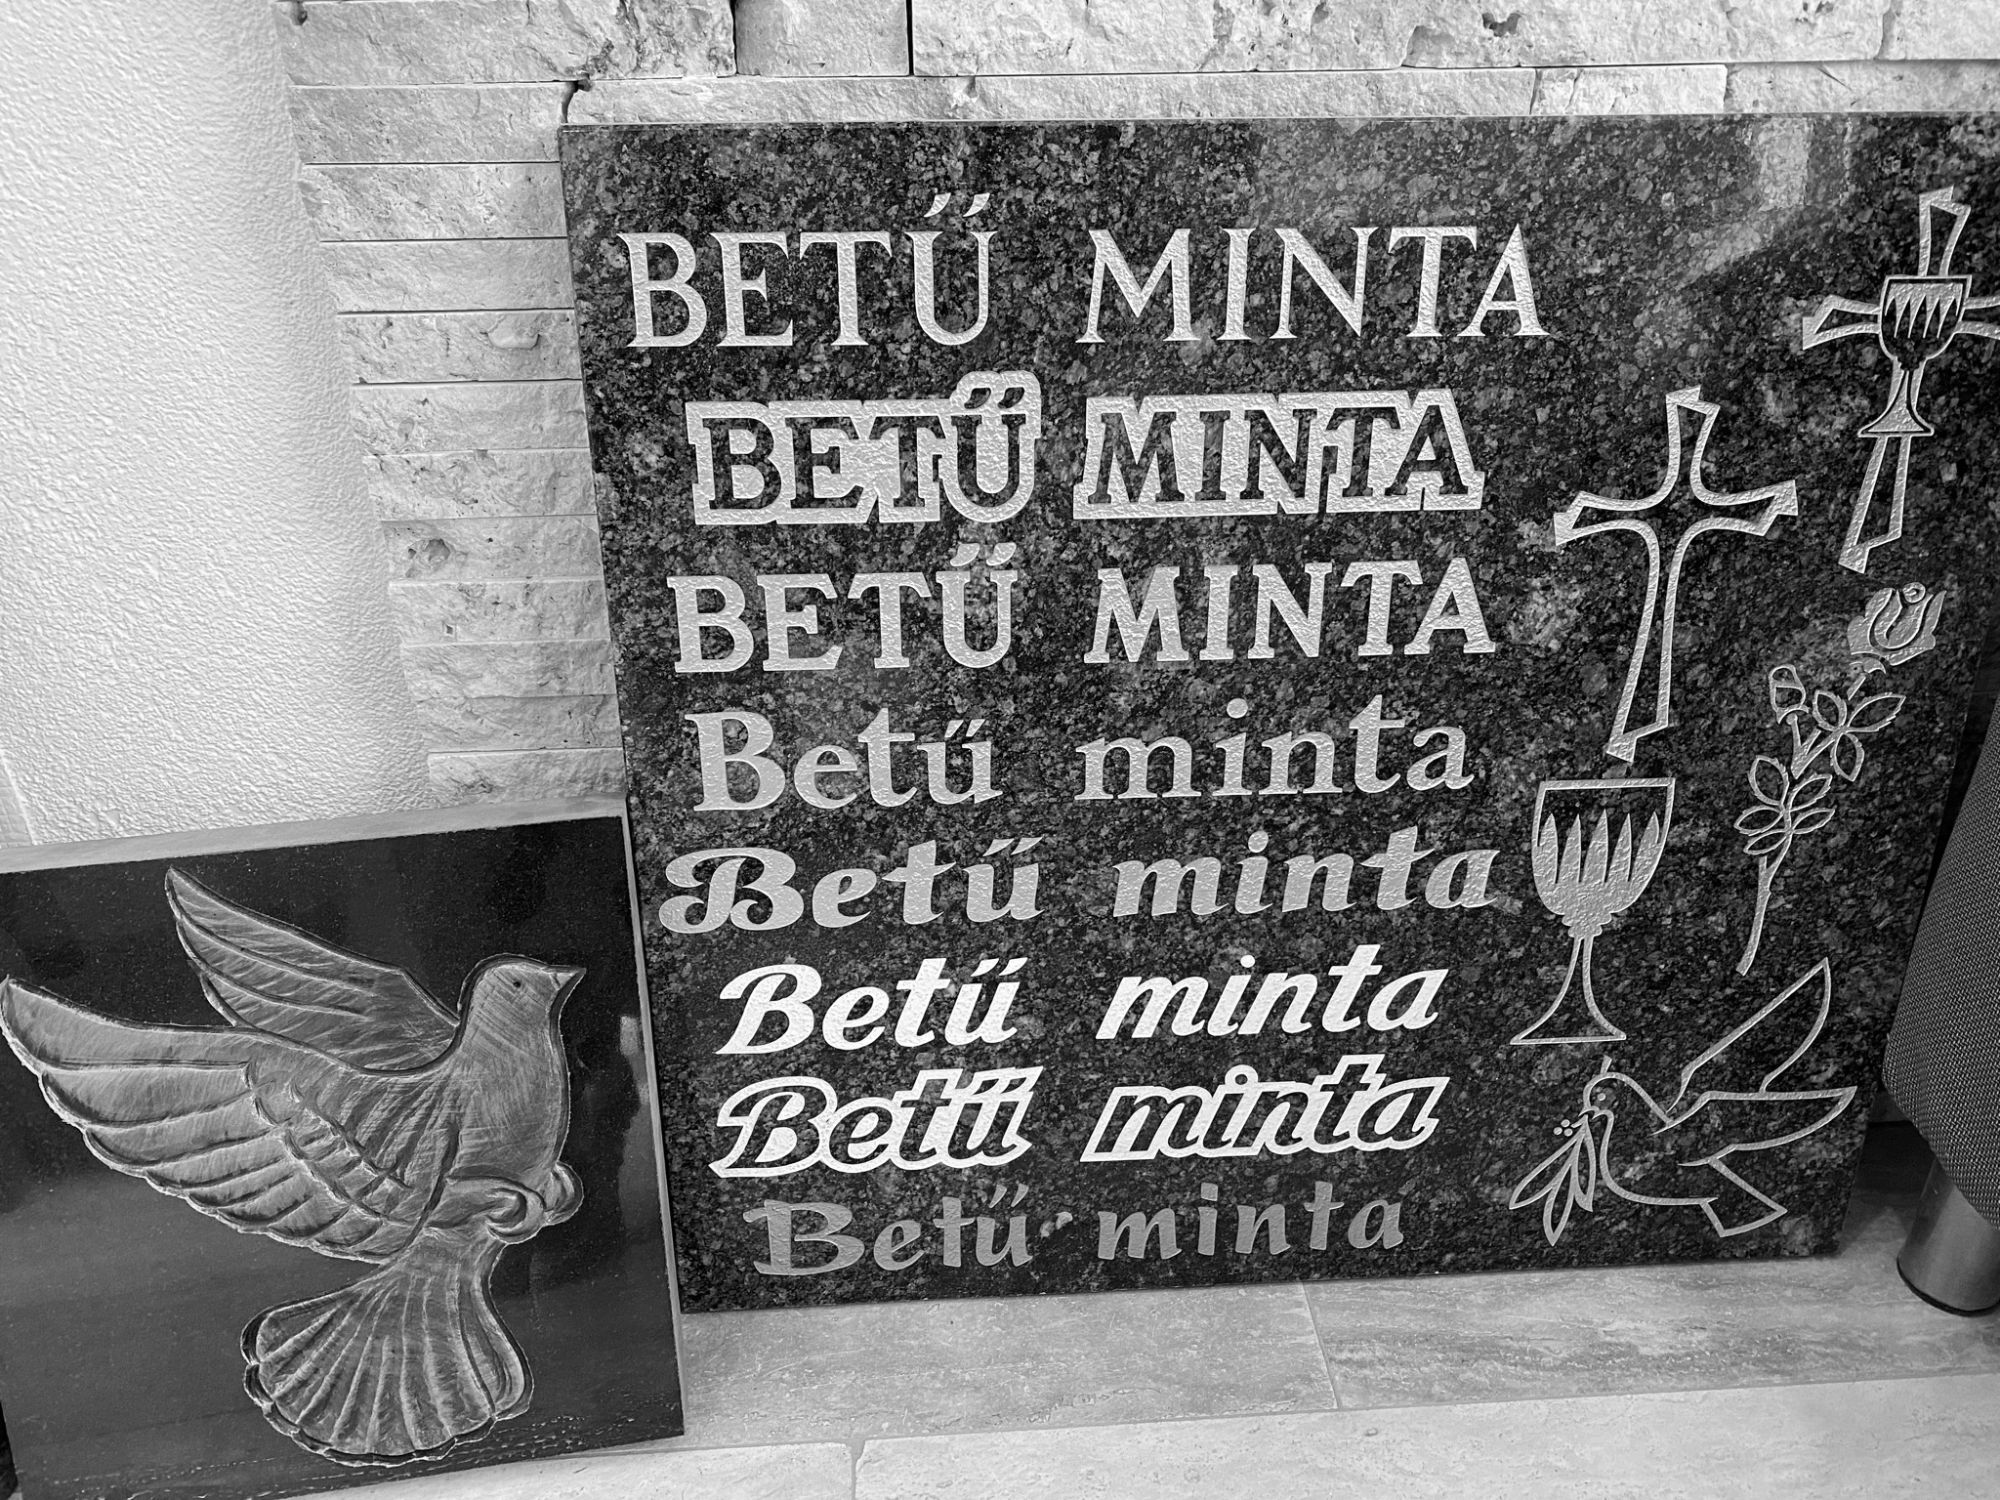 BETŰ MINTA
BETŰ MINTA
BETŰ MINTA
Betű minta
Betű minta
Betű minta
Betű minta
Betű minta